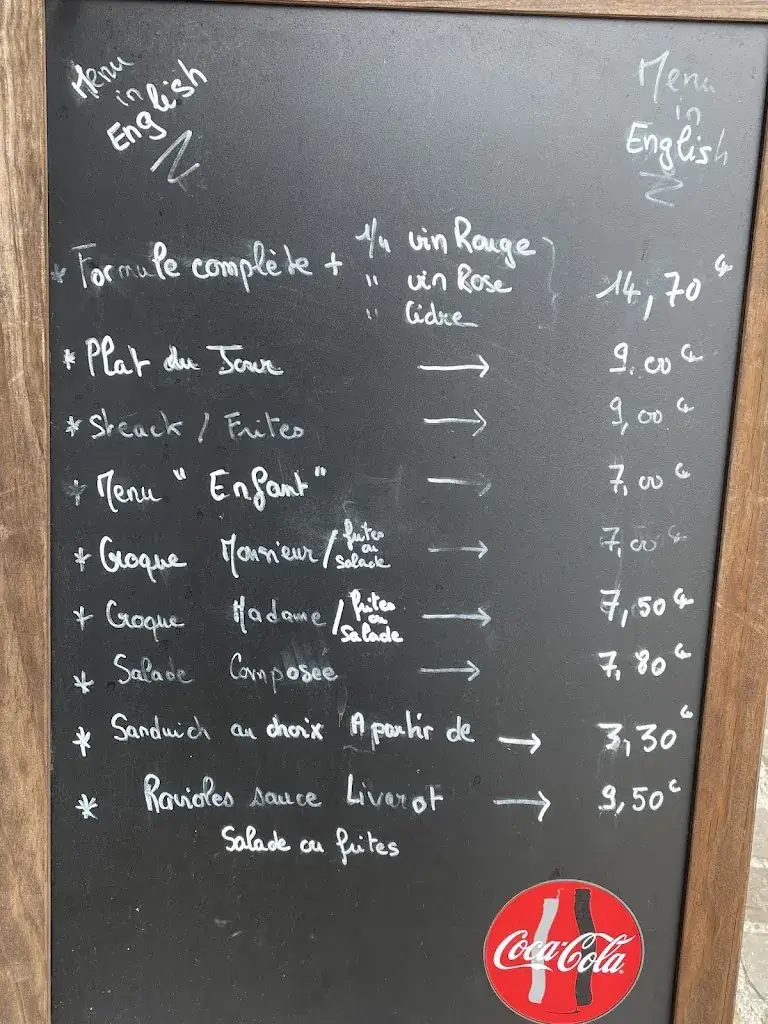 Menu
in
English
Menu
in
English
* Formule complète + 1/4 vin Rouge
" vin Rose
" Cidre
14,70€
* Plat du Jour → 9.00€
* Steack / Frites → 9,00€
* Menu " Enfant" → 7,00€
* Croque Monsieur / frites ou Salade → 7,00€
* Croque Madame / frites ou Salade → 7,50€
* Salade Composée → 7,80€
* Sandwich au choix A partir de → 3,30€
* Ravioles sauce Livarot → 9,50€
Salade ou frites
Coca-Cola